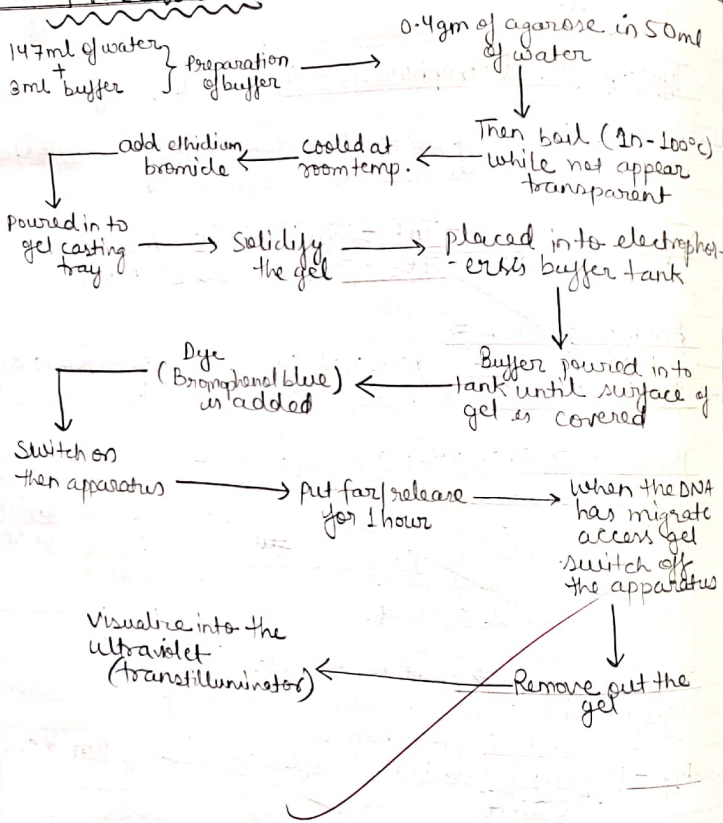 147ml of water
+
3ml buffer
Preparation
of buffer
0.4gm of agarose in 50ml
of water
Then boil (90-100°c)
while not appear
transparent
cooled at
room temp.
add ethidium
bromide
poured in to
gel casting
tray
Solidify
the gel
placed into electrophor
-ersis buffer tank
Buffer poured into
tank until surface of
gel is covered
Dye
(Bromophenol blue)
is added
Switch on
then apparatus
Put for/release
for 1 hour
When the DNA
has migrate
access gel
switch off
the apparatus
Remove out the
gel
Visualize into the
ultraviolet
(transtilluminator)